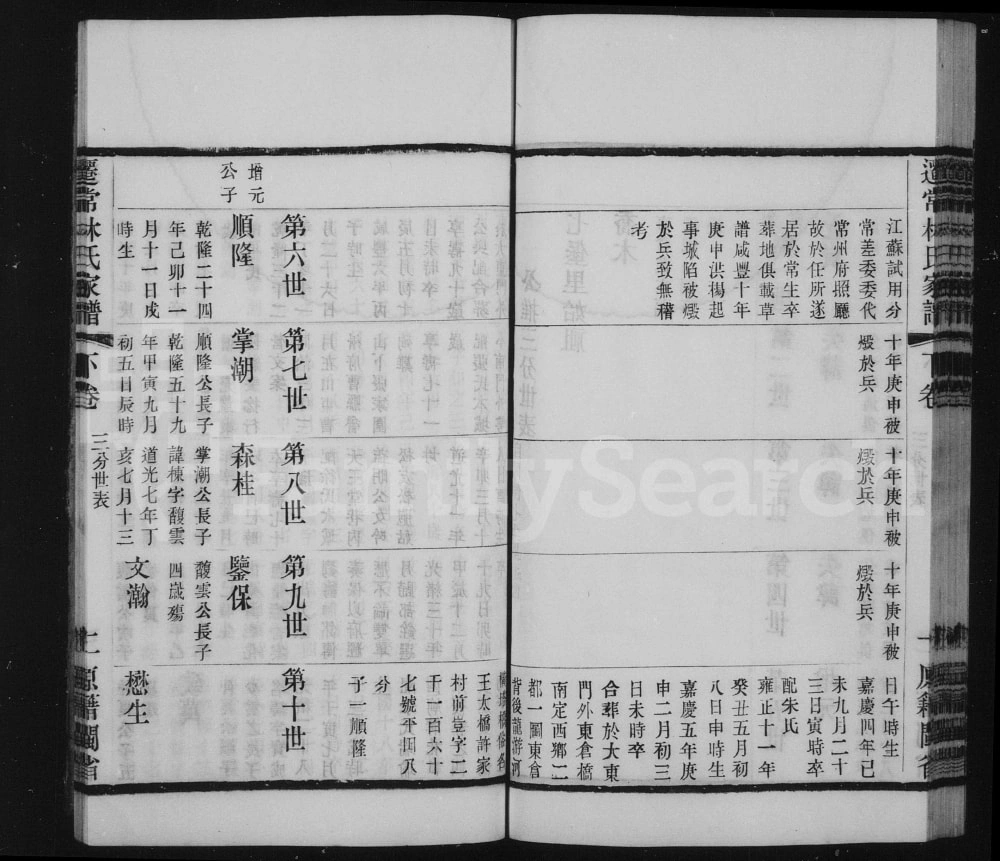 江蘇試用分
常差委委代
常州府照廳
故於任所遂
居於常生卒
葬地俱載草
譜咸豐十年
庚申洪揚起
事城陷被燬
於兵致無稽
考
十年庚申被
燬於兵
十年庚申被
燬於兵
十年庚申被
燬於兵
日午時生
嘉慶四年己
未九月二十
三日寅時卒
配朱氏
雍正十一年
癸丑五月初
八日申時生
嘉慶五年庚
申二月初三
日未時卒
合葬於大東
門外東倉橋
南定西鄉二
都一圖東倉
背後龍游河
王太橋許家
村前豈字二
千一百六十
七號平田八
分
子一順隆
增元
公子
第六世
順隆
乾隆二十四
年己卯十一
月十一日戌
時生
第七世
掌潮
順隆公長子
乾隆五十九
年甲寅九月
初五日辰時
第八世
森桂
掌潮公長子
諱棟字馥雲
道光七年丁
亥七月十三
第九世
鑒保
馥雲公長子
四歲殤
文瀚
第十世
懋生
遷常林氏家譜
下卷
三分世表
十一
原籍閩省
SearchMySearch